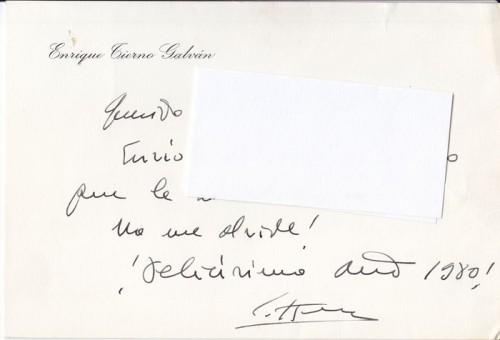 Enrique Tierno Galván
Querido
Envío
que le
No me olvide!
¡Felicísimo año 1980!